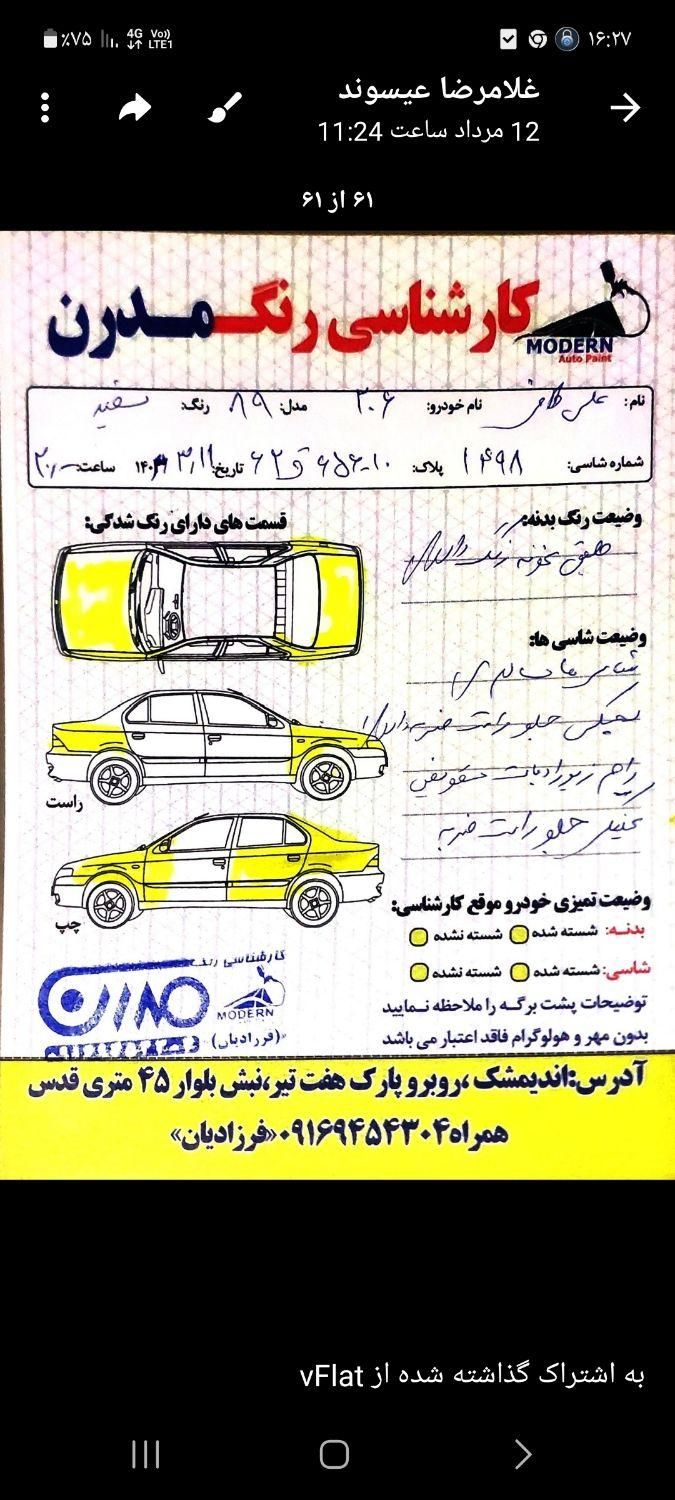 ۱۶:۲۷
٪۷۵
4G
Vo))
LTE1
غلامرضا عیسوند
12 مرداد ساعت 11:24
۶۱ از ۶۱
کارشناسی رنگ مدرن
MODERN
Auto Paint
نام: علی نام خودرو: ۲۰۶ مدل: ۸۹ رنگ: سفید
شماره شاسی: ۱۴۹۸ پلاک: تاریخ: ساعت:
وضیعت رنگ بدنه:
طبق نمونه رنگ دارد
قسمت های دارای رنگ شدگی:
وضیعت شاسی ها:
شاسی ها سالم
جلو راست ضربه دارد
رام زیر رادیات تعویض
جلو راست ضربه
راست
چپ
وضیعت تمیزی خودرو موقع کارشناسی:
بدنه: شسته شده شسته نشده
شاسی: شسته شده شسته نشده
توضیحات پشت برگه را ملاحظه نمایید
بدون مهر و هولوگرام فاقد اعتبار می باشد
کارشناسی رنگ
مدرن
MODERN
(فرزادیان)
آدرس:اندیمشک ،روبرو پارک هفت تیر،نبش بلوار ۴۵ متری قدس
همراه ۰۹۱۶۹۴۵۴۳۰۴«فرزادیان»
به اشتراک گذاشته شده از vFlat